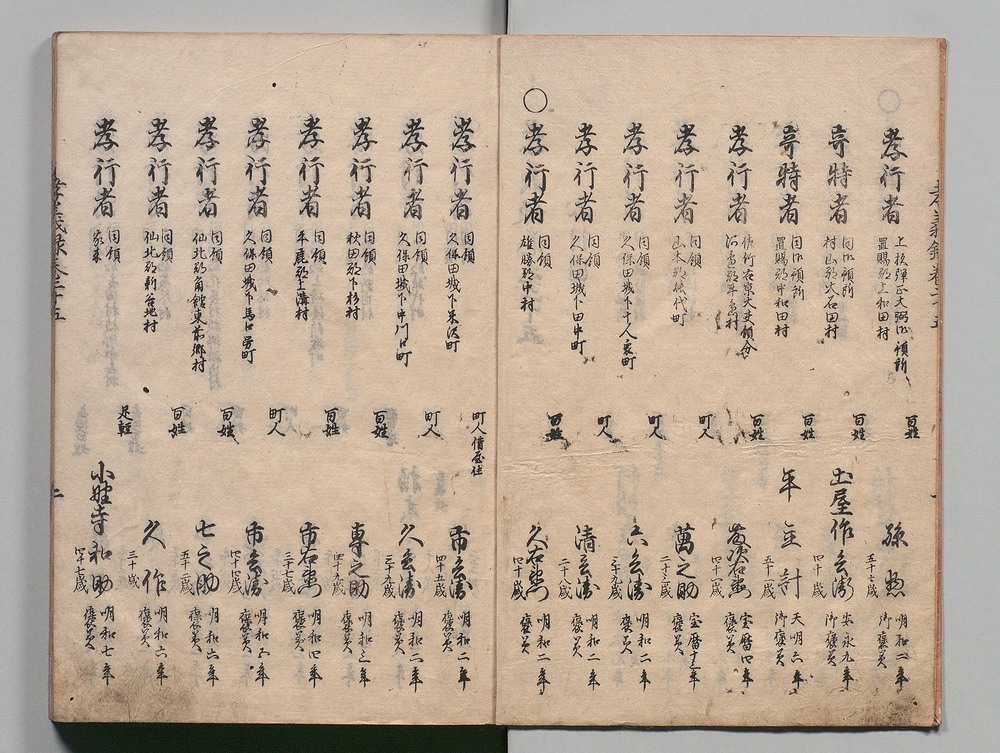 孝行者 上杉弾正大弼御預所 置賜郡上和田村 百姓 孫惣 五十七歳 明和二年 御褒美
奇特者 同御預所 村山郡大石田村 百姓 土屋作兵衛 四十歳 安永九年 御褒美
奇特者 同御預所 置賜郡中和田村 百姓 年 五十一歳 天明六年 御褒美
孝行者 佐竹右京大夫領分 河辺郡平 村 百姓 四十一歳 宝暦四年 褒美
孝行者 同領 山本郡能代町 町人 萬之助 二十三歳 宝暦十三年 褒美
孝行者 同領 久保田城下十人衆町 町人 六兵衛 三十九歳 明和二年 褒美
孝行者 同領 久保田城下田中町 町人 清兵衛 二十八歳 明和二年 褒美
○ 孝行者 同領 雄勝郡中村 百姓 久右衛門 四十歳 明和二年 褒美
孝行者 同領 久保田城下米沢町 町人借屋住 市兵衛 四十五歳 明和二年 褒美
孝行者 同領 久保田城下中川口町 町人 久兵衛 三十九歳 明和二年 褒美
孝行者 同領 秋田郡下杉村 百姓 専之助 四十九歳 明和三年 褒美
孝行者 同領 平鹿郡上溝村 百姓 市右衛門 三十七歳 明和四年 褒美
孝行者 同領 久保田城下馬口労町 町人 市兵衛 四十七歳 明和五年 褒美
孝行者 同領 仙北郡角館東前郷村 百姓 七之助 五十二歳 明和六年 褒美
孝行者 同領 仙北郡新 村 百姓 久作 三十歳 明和六年 褒美
孝行者 同領 家来 足軽 小野寺和助 四十七歳 明和七年 褒美